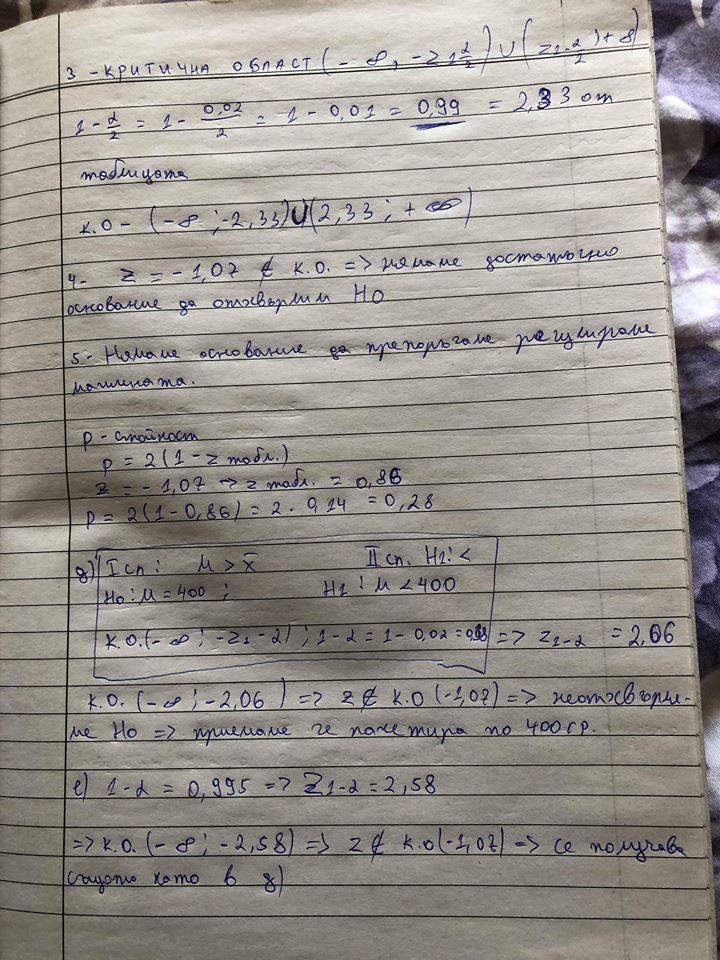 3 - КРИТИЧНА ОБЛАСТ (- ∞, -z1-α/2) ∪ (z1-α/2, +∞)
1 - α/2 = 1 - 0,02/2 = 1 - 0,01 = 0,99 = 2,33 от
таблицата
к.О - (-∞; -2,33) ∪ (2,33; +∞)
4- z = -1,07 ∉ к.О. => нямаме достатъчно
основание да отхвърлим H0
5 - Нямаме основание да препоръчаме регулиране
машината.
p - стойност
p = 2(1 - z табл.)
z = -1,07 → z табл. = 0,86
p = 2(1 - 0,86) = 2 . 0,14 = 0,28
д) I сп: μ > x̄ II сп. H1: <
H0: μ = 400 ; H1: μ < 400
к.О. (-∞; -z1-α) ; 1-α = 1 - 0,02 = 0,98 => z1-α = 2,06
к.О. (-∞; -2,06) => z ∉ к.О (-1,07) => неотхвърля-
ме H0 => приемаме че пакетира по 400 гр.
е) 1-α = 0,995 => z1-α = 2,58
=> к.О. (-∞; -2,58) => z ∉ к.О (-1,07) => се получава
същото като в д)